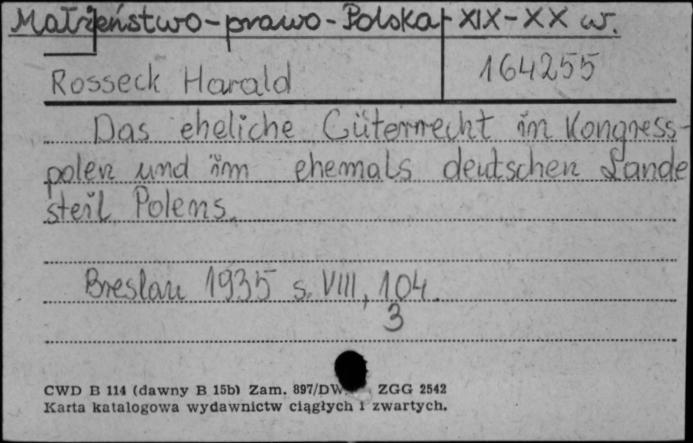 Małżeństwo-prawo-Polska-XIX-XX w.
Rosseck Harald
164255
Das eheliche Güterrecht im Kongress-
polen und im ehemals deutschen Lande
steil Polens.
Breslau 1935 s. VIII, 104.
3
CWD B 114 (dawny B 15b) Zam. 897/DW ZGG 2542
Karta katalogowa wydawnictw ciągłych i zwartych.